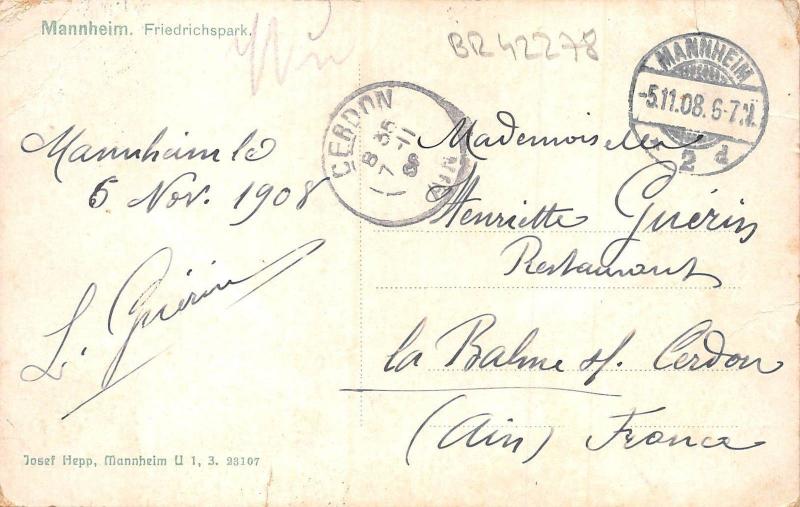 Mannheim. Friedrichspark.
BR42278
MANNHEIM
-5.11.08. 6-7.N.
2 d
CERDON
8 35
7 -11
08
AIN
Mannheim le
5 Nov. 1908
L. Guérin
Mademoiselle
Henriette Guérin
Restaurant
la Balme s/. Cerdon
(Ain) France
Josef Hepp, Mannheim U 1, 3. 23107